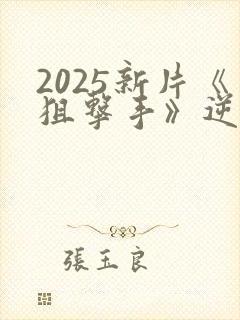 2025新片《
狙擊手》逆
張玉良